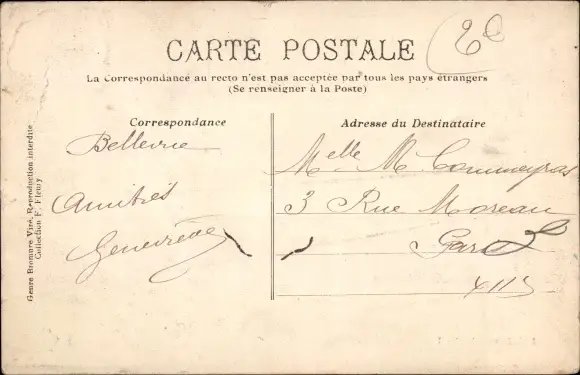 CARTE POSTALE
La Correspondance au recto n'est pas acceptée par tous les pays étrangers
(Se renseigner à la Poste)
Correspondance
Adresse du Destinataire
Bellevue
Amitiés
Geneviève
Melle M. Commeyras
3 Rue Moreau
Paris
Genre Bromure Vité, Reproduction interdite
Collection F. Fleury